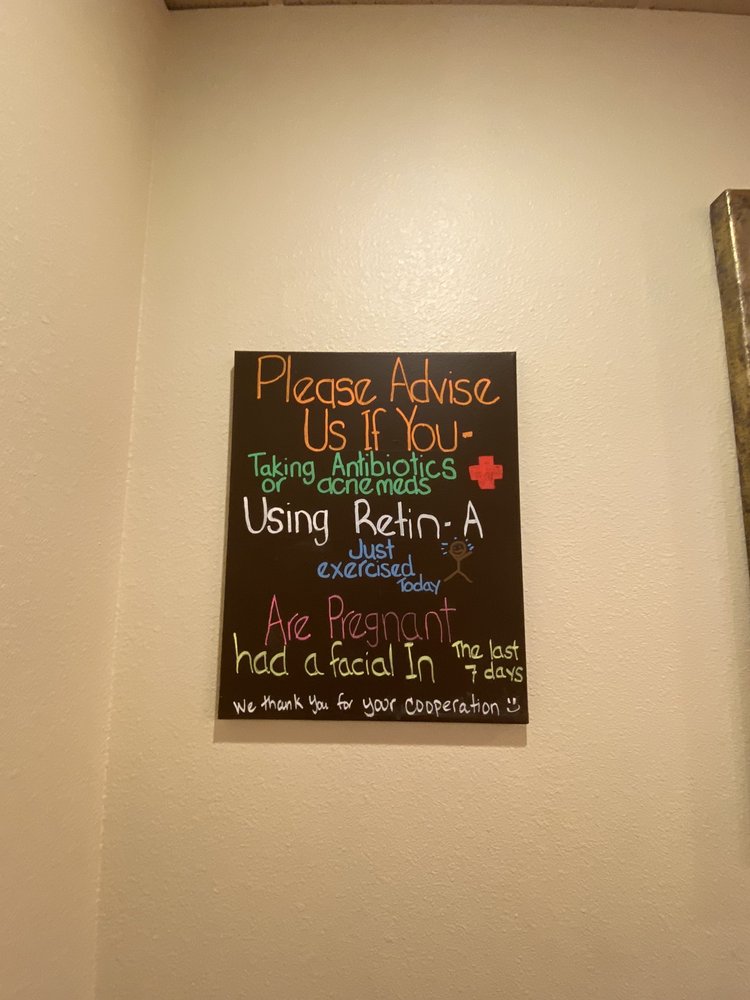 Please Advise
Us If You-
Taking Antibiotics
or acne meds
Using Retin-A
Just
exercised
Today
Are Pregnant
had a facial In The last
7 days
We thank You for your cooperation